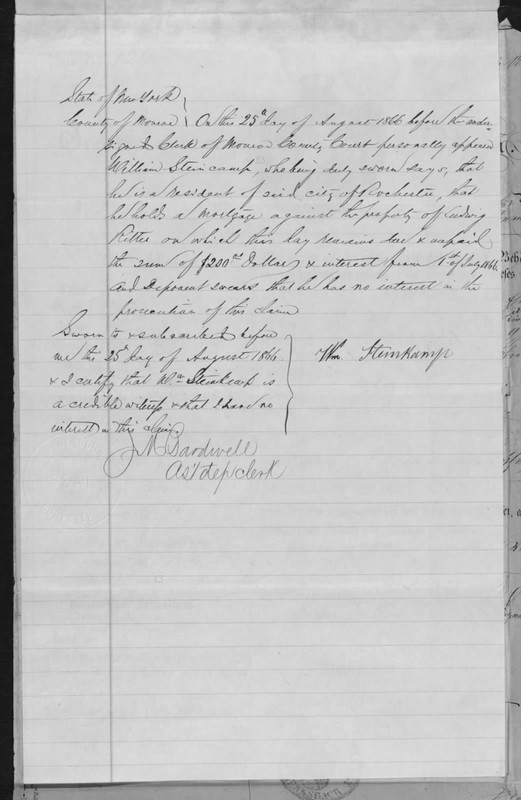 State of New York
County of Monroe } On this 25th day of August 1866 before the under-
signed Clerk of Monroe County Court personally appeared
William Steincamp, who being duly sworn says, that
he is a resident of said city of Rochester, that
he holds a mortgage against the property of Ludwig
Ritter on which this day remains due & unpaid
the sum of $200.00 Dollars & interest from 1st of July 1866.
And Deponent swears that he has no interest in the
prosecution of this claim
Sworn to & subscribed before
me this 25th day of August 1866
& I certify that Wm Steinkamp is
a credible witness & that I have no
interest in this claim.
Wm Steinkamp
J M Bardwell
Ast dep clerk